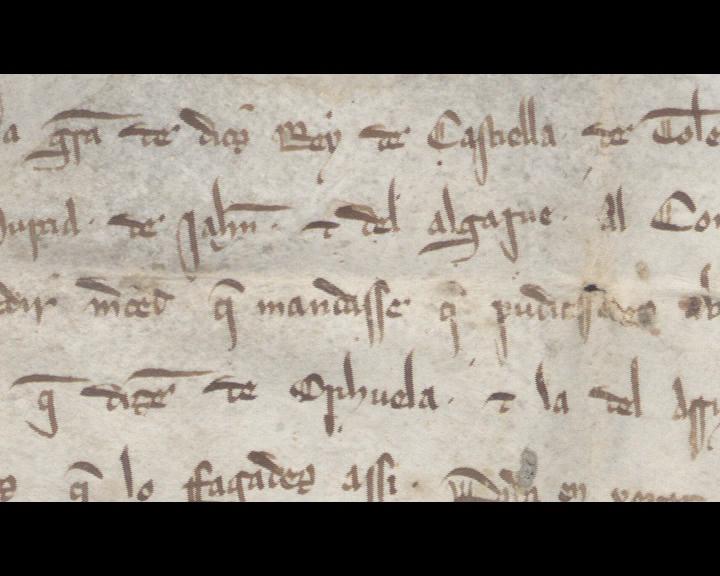 a gra de dios Rey de Castiella de Tole
Murcia. de Jahn. ⁊ del algarue. Al Con
dir mced q mandasse q pudiesse
q dize de Orihuela. ⁊ la del Assi
q lo ffagades assi. en